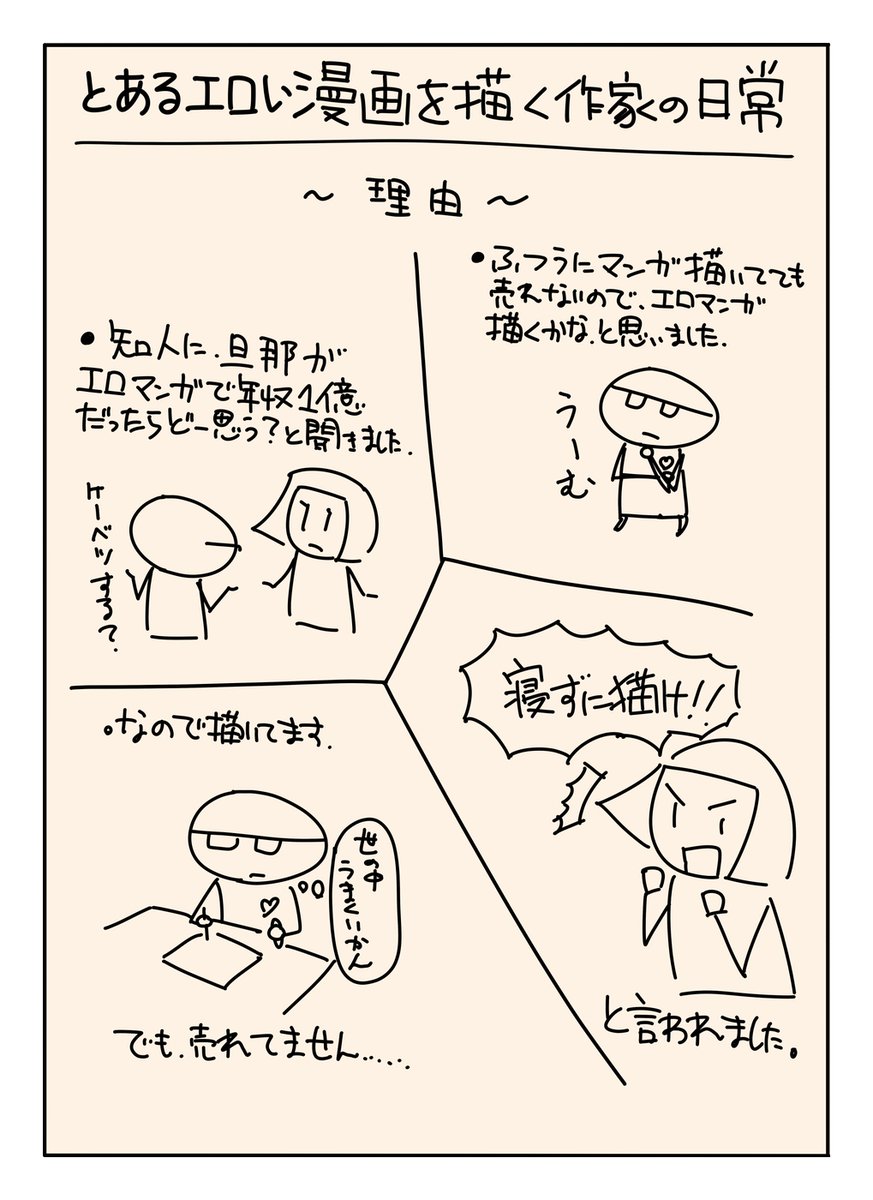 とあるエロい漫画を描く作家の日常
～理由～
•ふつうにマンガ描いてても
売れないので、エロマンガ
描くかな、と思いました。
うーむ
•知人に、旦那が
エロマンガで年収1億
だったらどー思う？と聞きました。
ケーベツするて。
寝ずに描け！！
と言われました。
•なので描いてます。
世の中
うまくいかん
でも、売れてません.....